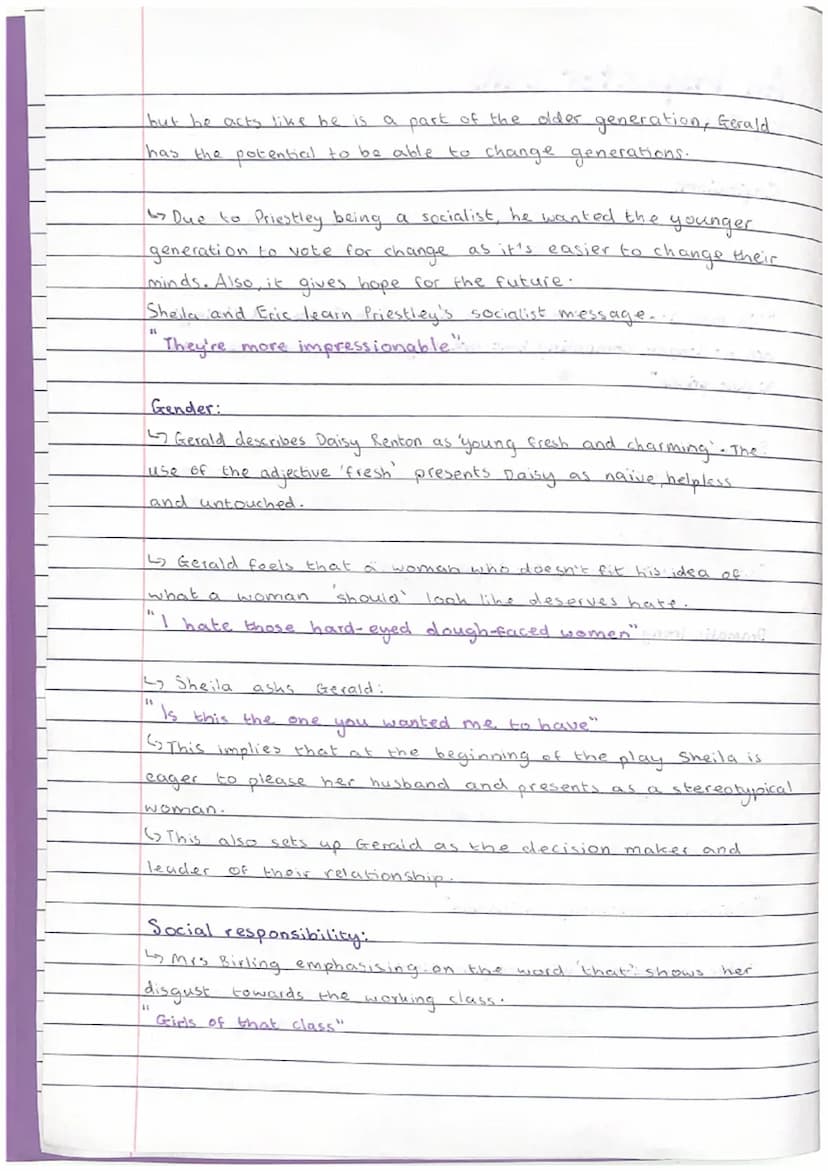 but he acts like he is a part of the older generation, Gerald
has the potential to be able to change generations.
↳ Due to Priestley being a socialist, he wanted the younger
generation to vote for change as it's easier to change their
minds. Also, it gives hope for the future.
Sheila and Eric learn Priestley's socialist message.
"They're more impressionable"
Gender:
↳ Gerald describes Daisy Renton as 'young fresh and charming'. The
use of the adjective 'fresh' presents Daisy as naive, helpless
and untouched.
↳ Gerald feels that a woman who doesn't fit his idea of
what a woman 'should' look like deserves hate.
"I hate those hard-eyed dough-faced women"
↳ Sheila asks Gerald:
"Is this the one you wanted me to have"
↳ This implies that at the beginning of the play Sheila is
eager to please her husband and presents as a stereotypical
woman.
↳ This also sets up Gerald as the decision maker and
leader of their relationship.
Social responsibility:
↳ Mrs Birling emphasising on the word 'that' shows her
disgust towards the working class.
"Girls of that class"